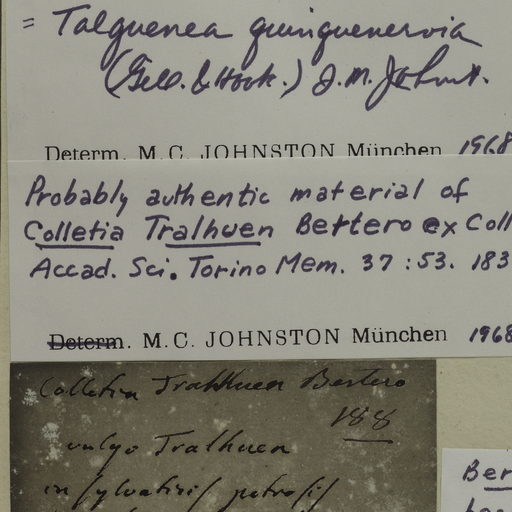 = Talguenea quinquenervia
(Gill. & Hook.) I.M. Johnst.
Determ. M.C. JOHNSTON München 1968
Probably authentic material of
Colletia Tralhuen Bertero ex Coll
Accad. Sci. Torino Mem. 37 : 53. 183
Determ. M.C. JOHNSTON München 1968
Colletia Tralhuen Bertero
188
vulgo Tralhuen
in sylvaticis petrosis
Ber